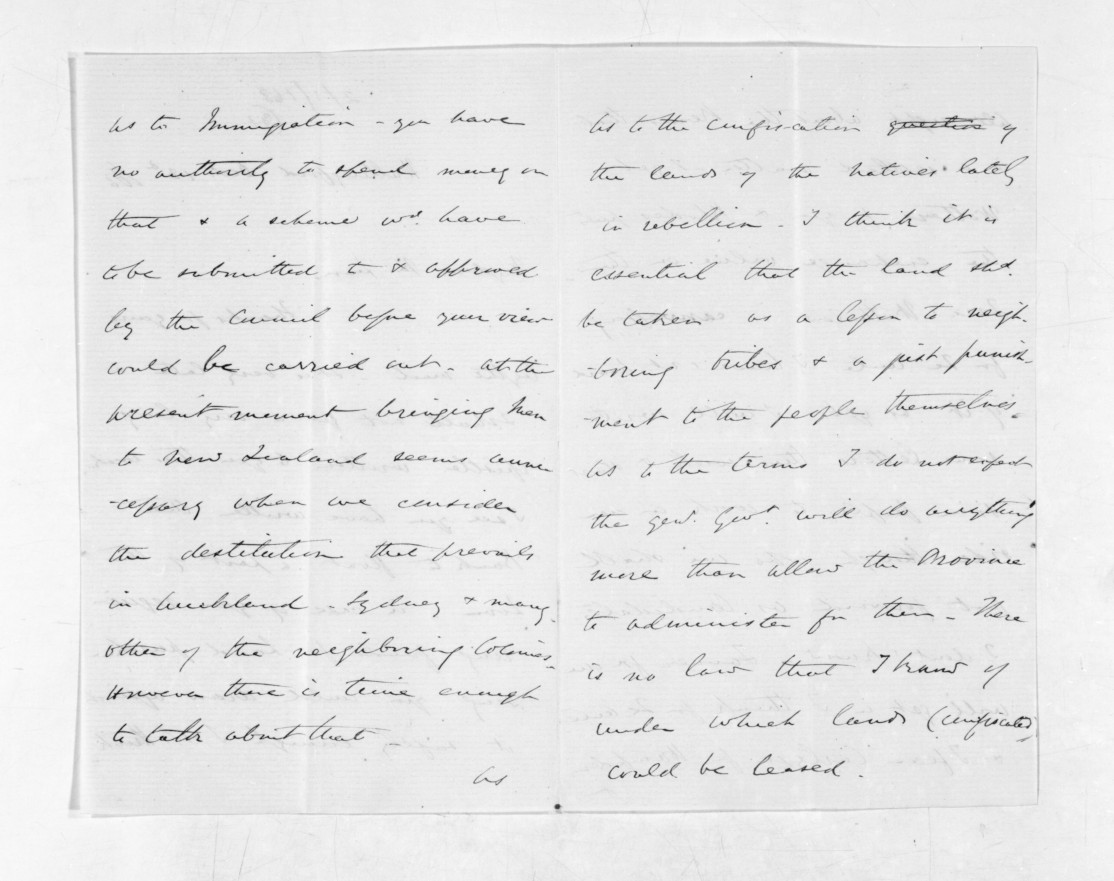 As to Immigration - you have
no authority to spend money on
that & a scheme wd. have
to be submitted to & approved
by the Council before your view
could be carried out - at the
present moment bringing men
to New Zealand seems unne
-cessary when we consider
the destitution that prevails
in Auckland - Sydney & many
other of the neighbouring Colonies.
However there is time enough
to talk about that
As
As to the confiscation question of
the lands of the Natives lately
in rebellion - I think it is
essential that the land shd.
be taken as a lesson to neigh-
-boring tribes & a just punish
-ment to the people themselves.
As to the terms I do not expect
the Genl. Govt. will do anything
more than allow the Province
to administer for them - There
is no law that I know of
under which lands (confiscated)
could be leased.